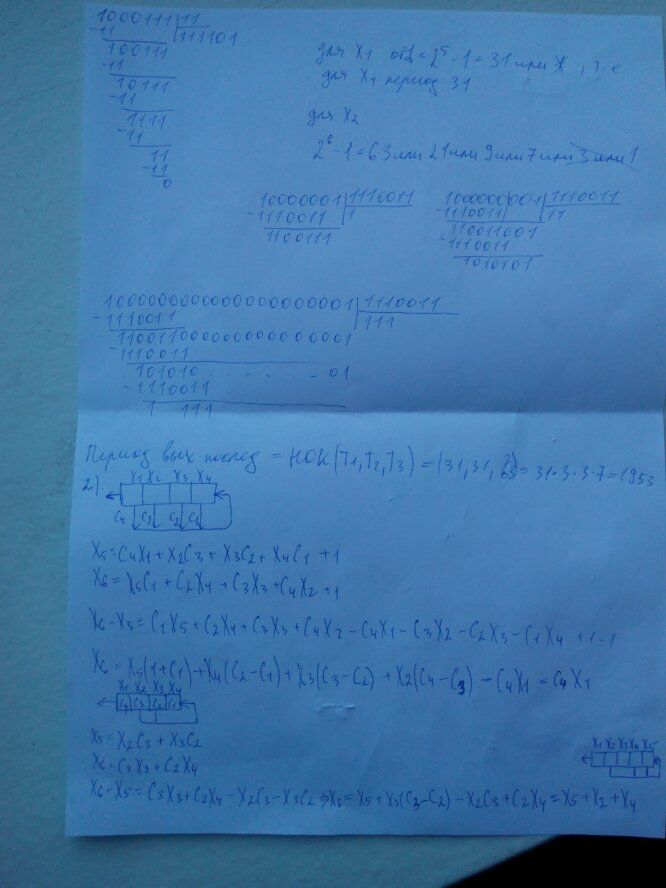 1000111 | 11
-11 111101
100111
-11
10111
-11
1111
-11
11
-11
0
для X1 = 2^5 - 1 = 31 или , т.е
для X1 период 31
для X2
2^6 - 1 = 63 или 21 или 9 или 7 или 3 или 1
10000001 | 1110011
-1110011 1
1100111
1000000001 | 1110011
-1110011 11
110011001
-1110011
1010101
1000000000000000000001 | 1110011
-1110011 111
110011000000000000001
-1110011
101010 . . . . . . . 01
-1110011
1 111
Период вых послед = НОК(T1, T2, T3) = (31, 31, 63) = 31·3·3·7 = 1953
2)
X1 X2 X3 X4
C4 C3 C2 C1
X5 = C4X1 + X2C3 + X3C2 + X4C1 + 1
X6 = X5C1 + C2X4 + C3X3 + C4X2 + 1
X6 - X5 = C1X5 + C2X4 + C3X3 + C4X2 - C4X1 - C3X2 - C2X3 - C1X4 + 1 - 1
X6 = X5(1+C1) + X4(C2-C1) + X3(C3-C2) + X2(C4-C3) - C4X1 = C4X1
X1 X2 X3 X4
C4 C3 C2 C1
X5 = X2C3 + X3C2
X6 = C3X3 + C2X4
X6 - X5 = C3X3 + C2X4 - X2C3 - X3C2 => X6 = X5 + X3(C3-C2) - X2C3 + C2X4 = X5 + X2 + X4
X1 X2 X3 X4 X5